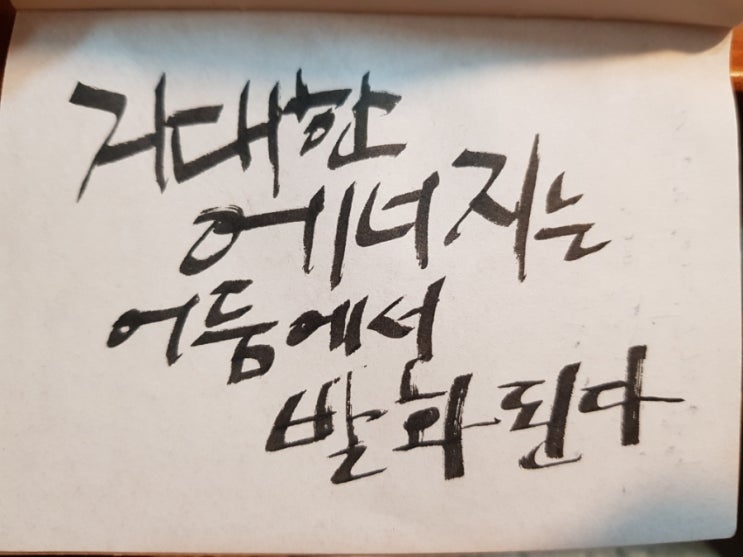 거대한
에너지는
어둠에서
발화된다